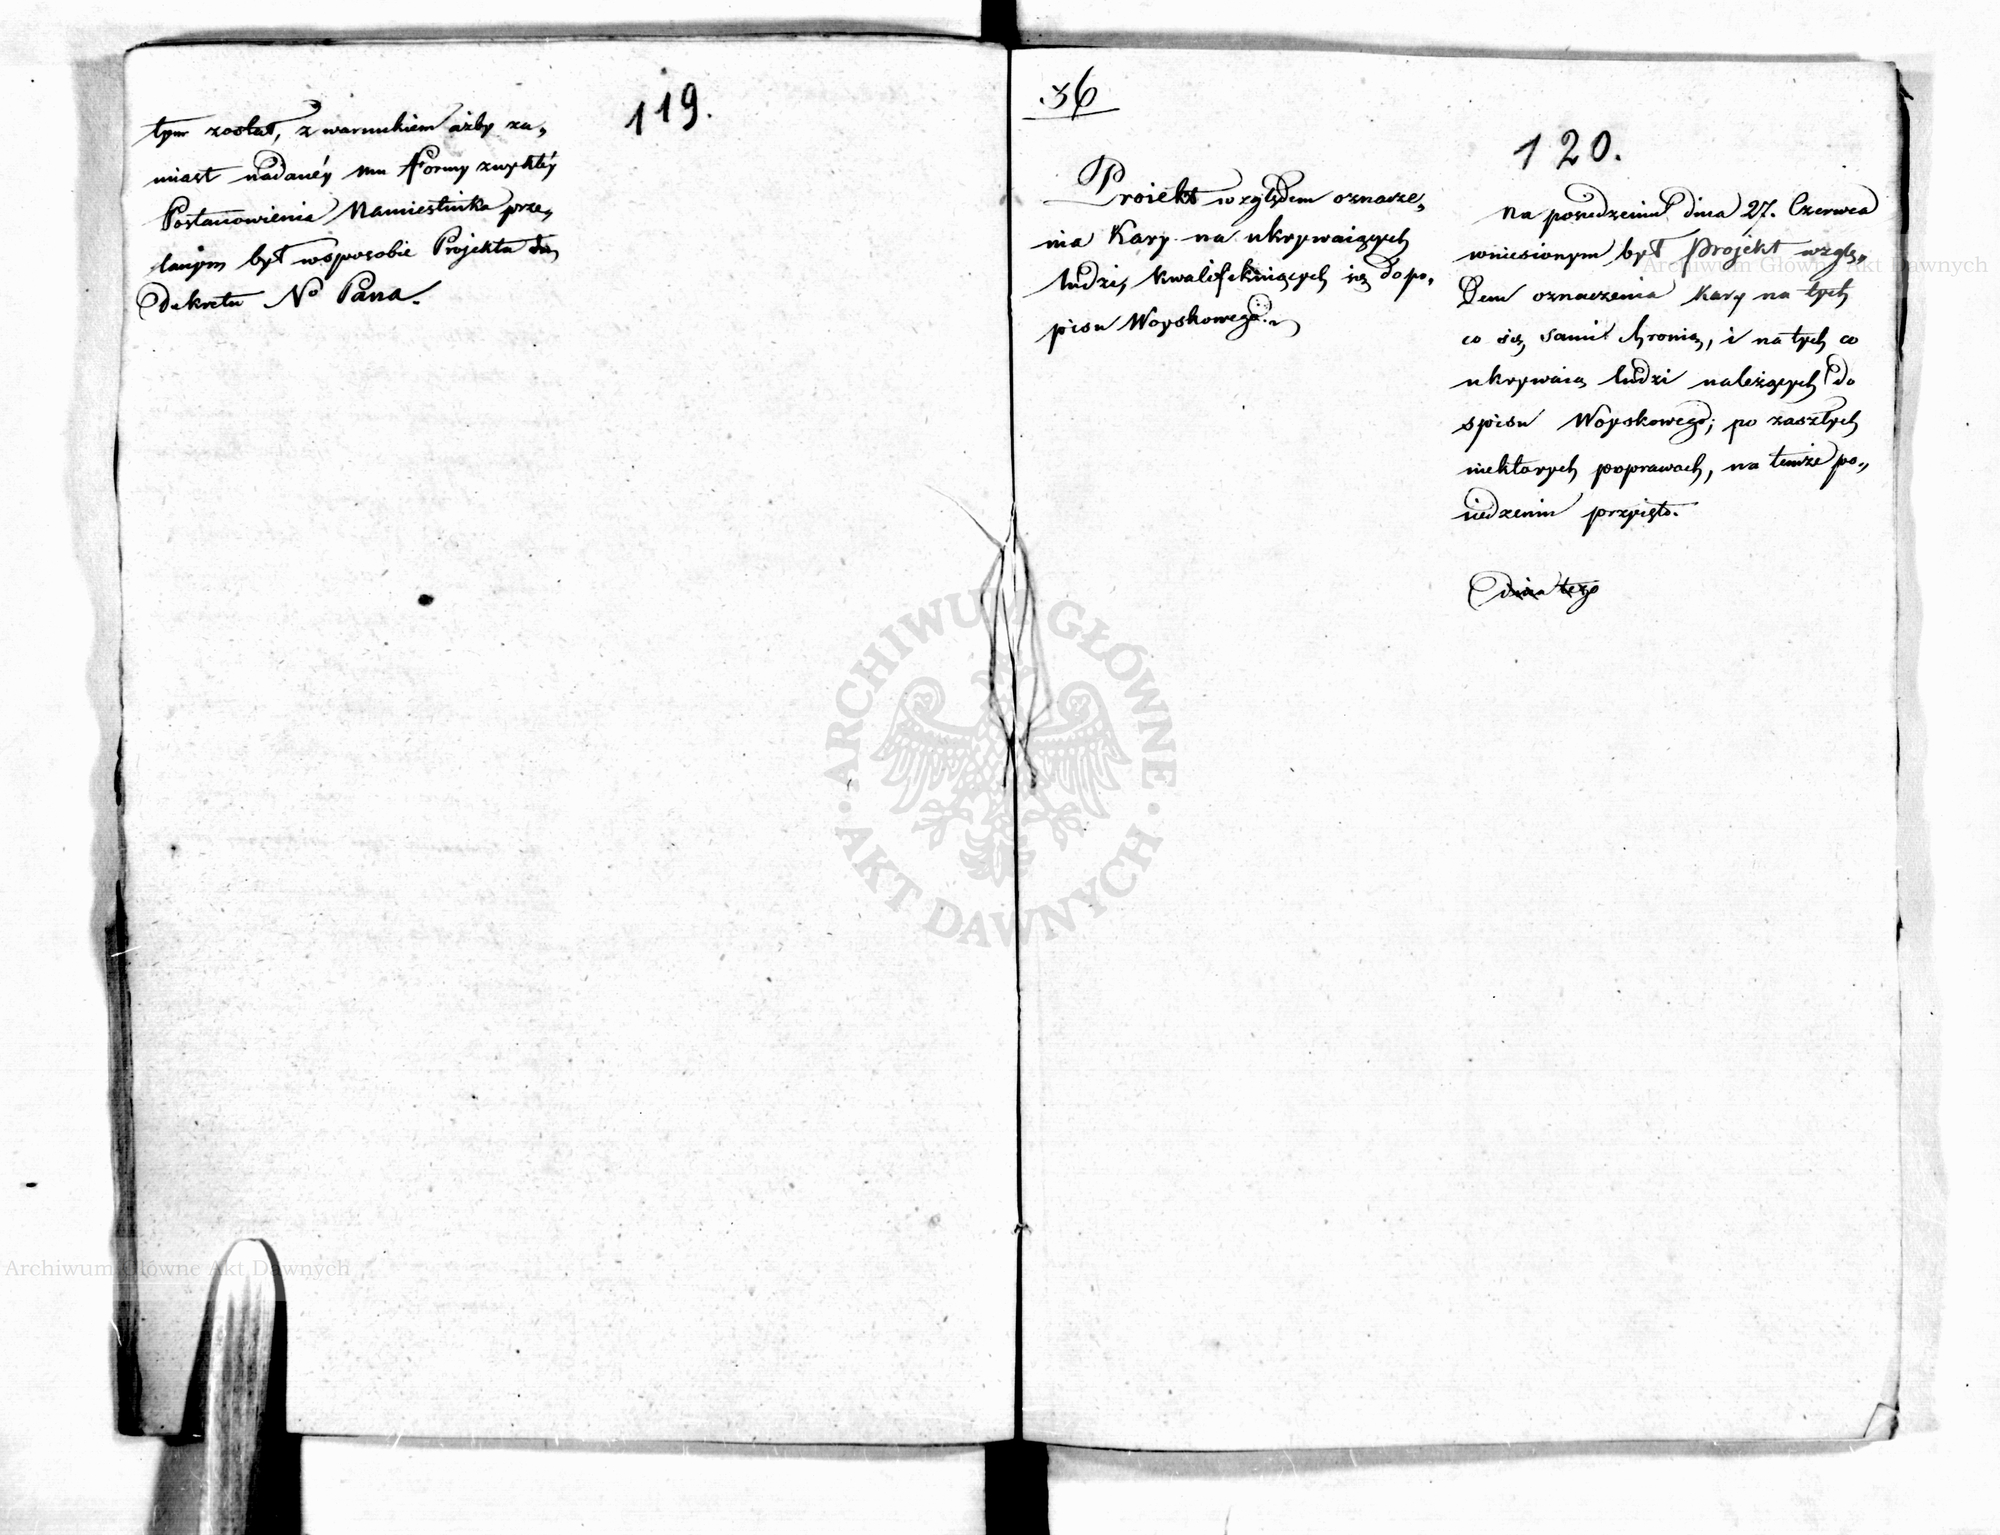 119.
tym został, z warunkiem ażby za„
miast nadanéy mu Formy zwykłéy
Postanowienia Namiestnika prze„
łanym był wsposobie Projektu do
Dekretu No Pana.
36
Proiekt względem oznacze„
nia Kary na ukrywaiących
ludzi, kwalifikuiących się do po„
pisu Woyskowego.
120.
Na posiedzeniu dnia 27. Czerwca
wniesionym był Projekt wzglę„
Dem oznaczenia Kary na tych
co się sami chronią, i na tych co
ukrywaią ludzi należących do
spisu Woyskowego; po zaszłych
niektorych poprawach, na temże po„
siedzeniu przyięto.
Dnia tego
ARCHIWUM GŁÓWNE
AKT DAWNYCH
Archiwum Główne Akt Dawnych
Archiwum Główne Akt Dawnych